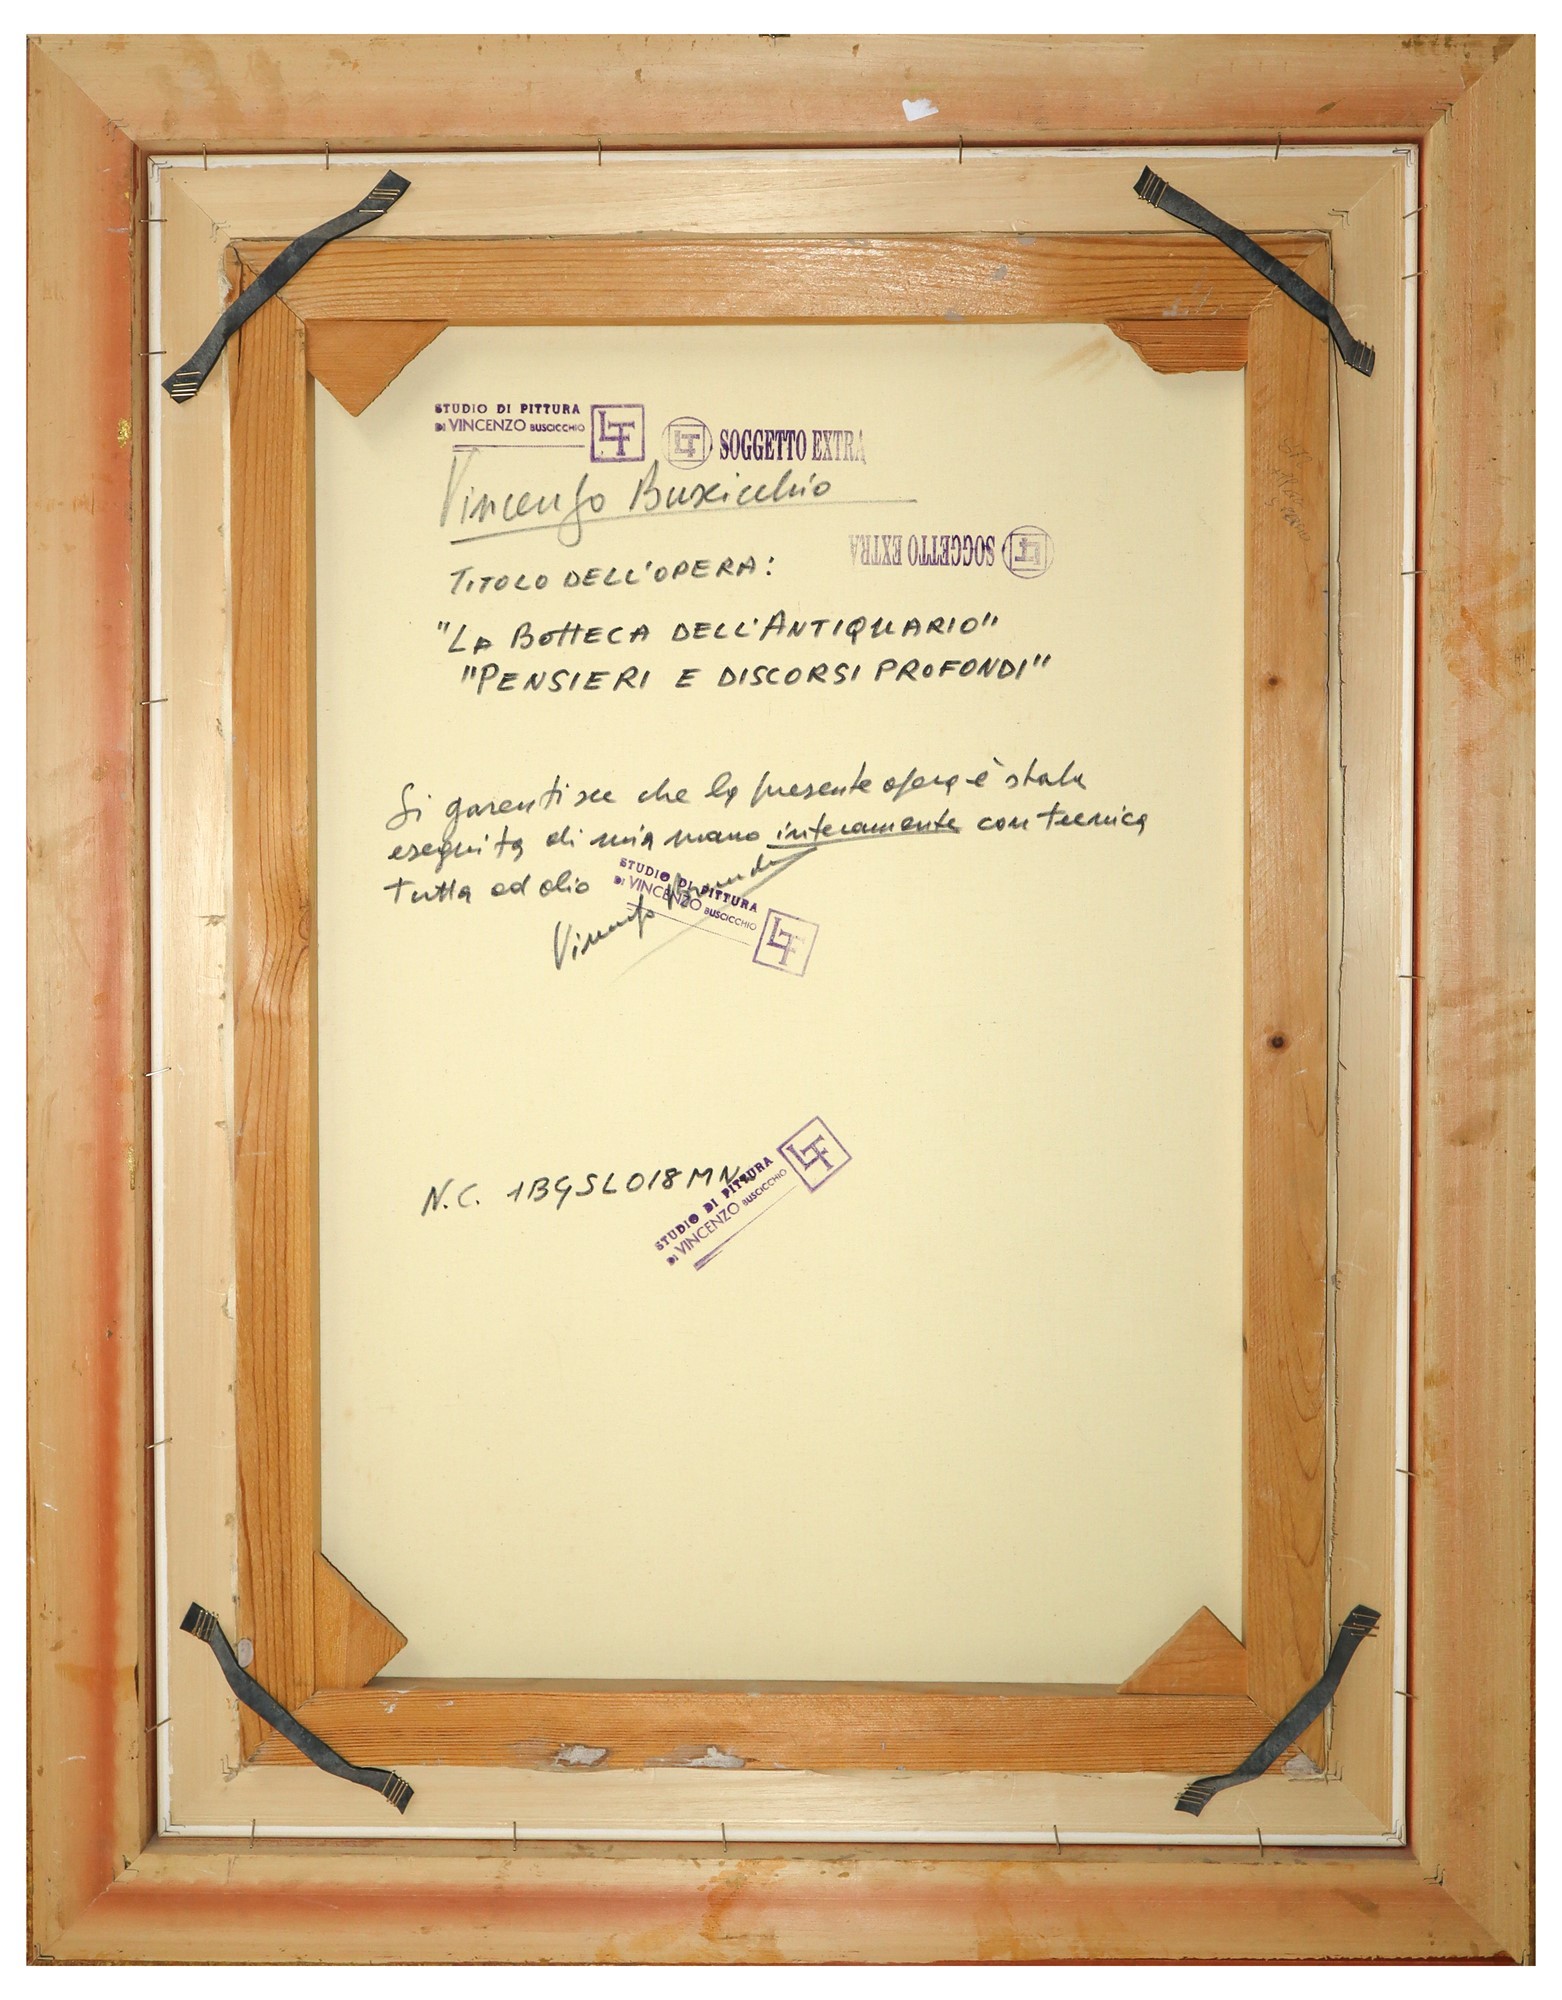 STUDIO DI PITTURA
DI VINCENZO BUSCICCHIO LF
LF SOGGETTO EXTRA
Vincenzo Buscicchio
SOGGETTO EXTRA LF
TITOLO DELL'OPERA:
"LA BOTTEGA DELL'ANTIQUARIO"
"PENSIERI E DISCORSI PROFONDI"
Si garantisce che la presente opera è stata
eseguita di mia mano interamente con tecnica
tutta ad olio
STUDIO DI PITTURA
DI VINCENZO BUSCICCHIO LF
Vincenzo
N.C. 1BGSL018MN
STUDIO DI PITTURA
DI VINCENZO BUSCICCHIO LF